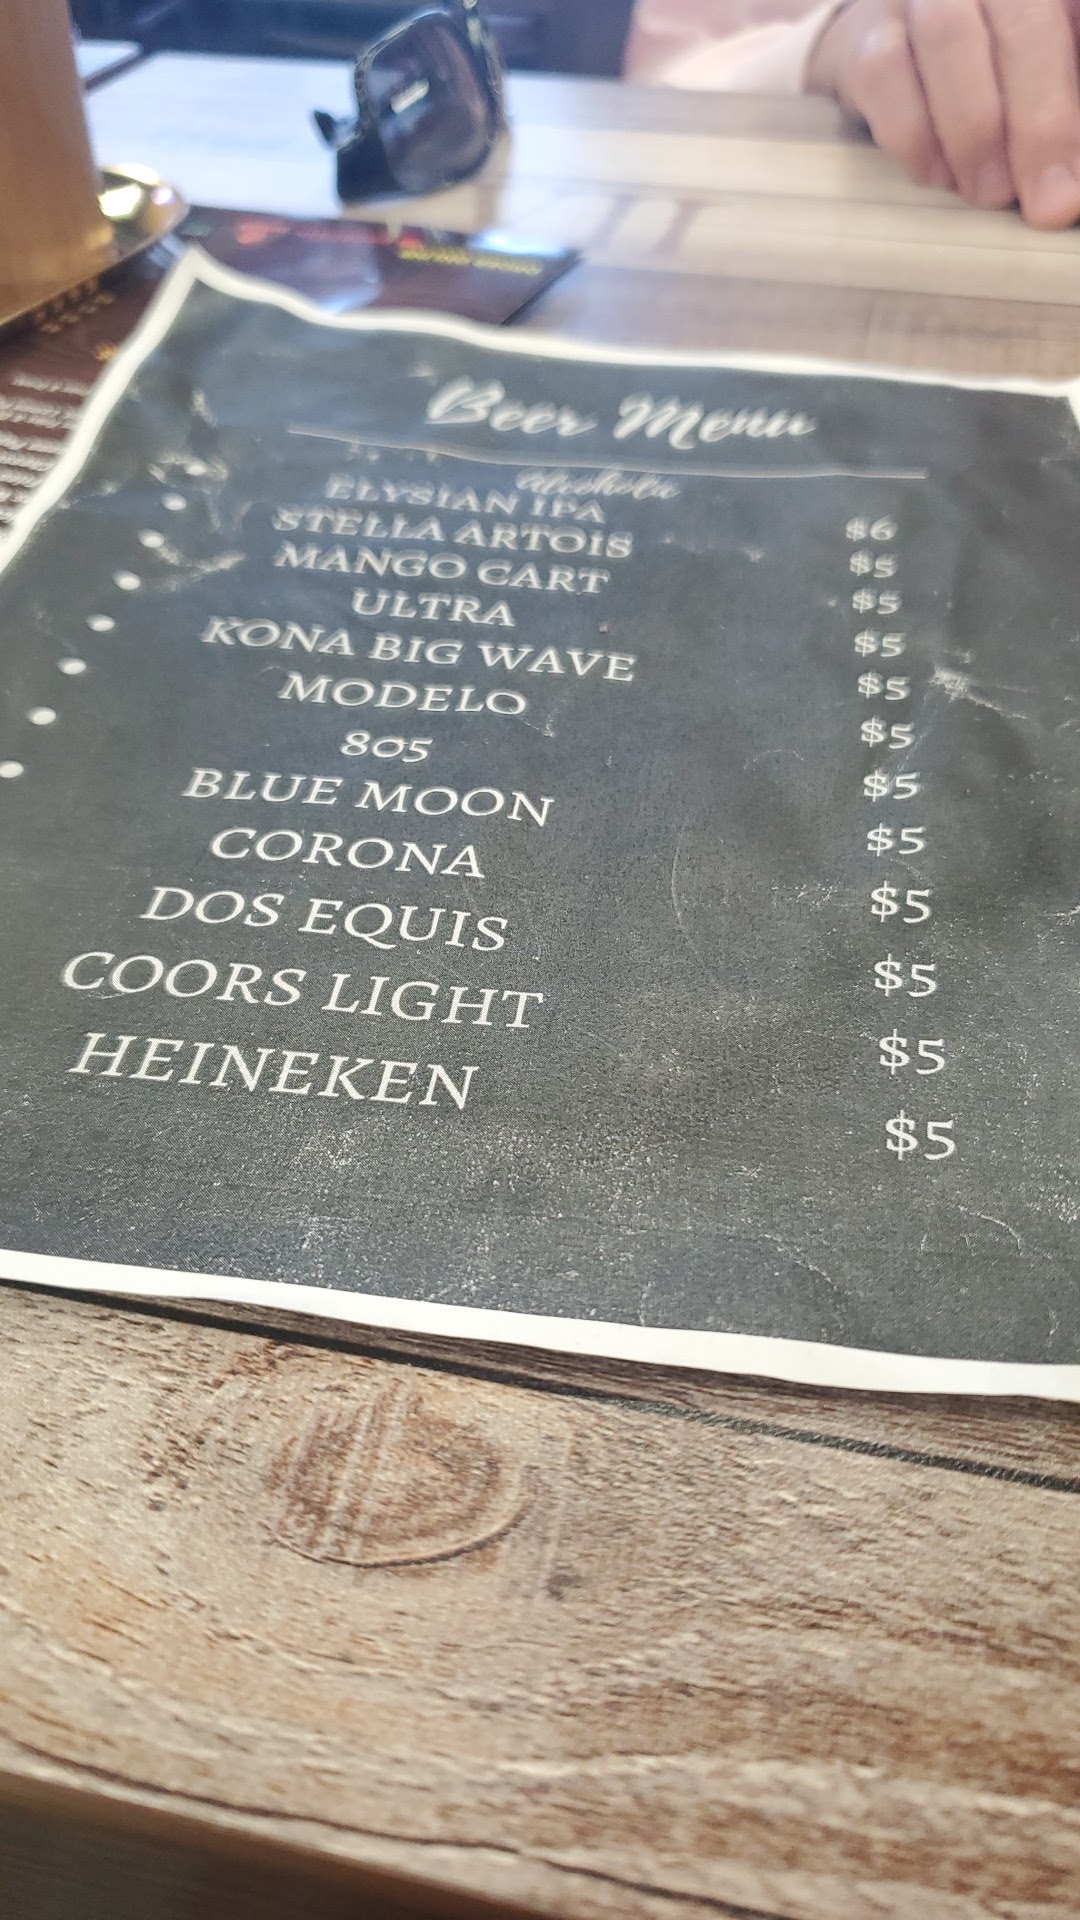 Beer Menu
ELYSIAN IPA $6
STELLA ARTOIS $5
MANGO CART $5
ULTRA $5
KONA BIG WAVE $5
MODELO $5
805 $5
BLUE MOON $5
CORONA $5
DOS EQUIS $5
COORS LIGHT $5
HEINEKEN $5